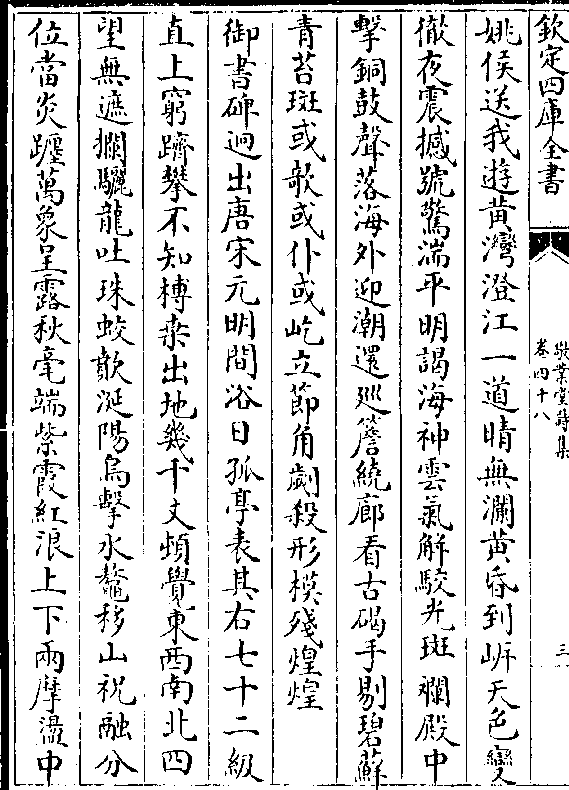 欽定四庫全書
敬業堂詩集
卷四十八
三
姚侯送我遊黃灣澄江一道晴無瀾黃昏到㟁天色變
徹夜震撼號驚湍平明謁海神雲氣解駮光斑斕殿中
擊銅鼓聲落海外迎潮還廵簷繞廊看古碣手剔碧蘚
青苔斑或欹或仆或屹立節角劘殺形模殘煌煌
御書碑迥出唐宋元明間浴日孤亭表其右七十二級
直上窮躋攀不知榑桑出地幾千丈頓覺東西南北四
望無遮攔驪龍吐珠蛟歕涎陽烏擊水鼇移山祝融分
位當炎躔萬象呈露秋毫端紫霞紅浪上下兩摩盪中